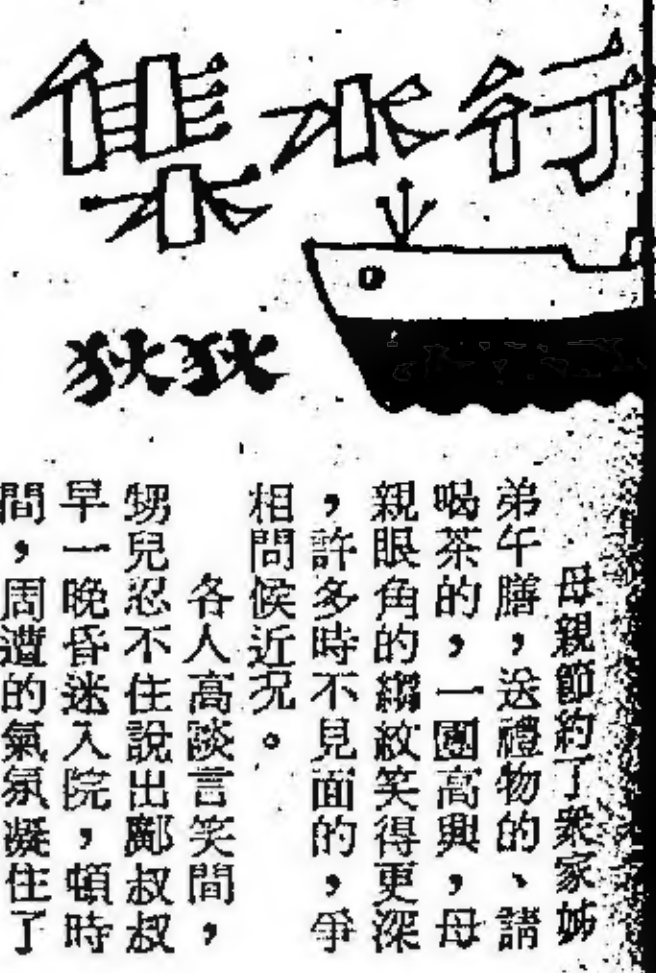 行水集
狄狄
母親節約了衆家姊
弟午膳，送禮物的、請
喝茶的，一團高興，母
親眼角的縐紋笑得更深
，許多時不見面的，爭
相問候近況。
各人高談言笑間，
甥兒忍不住說出鄺叔叔
早一晚昏迷入院，頓時
間，周遭的氣氛凝住了